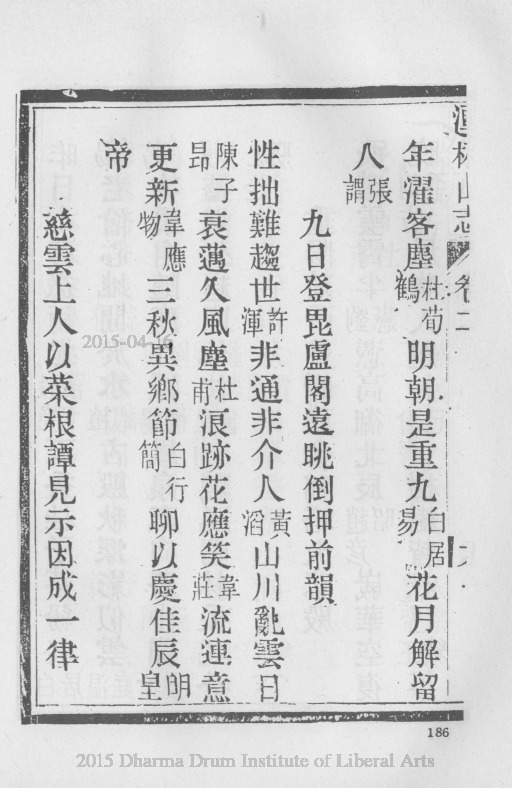 年濯客塵杜荀鶴明朝是重九白居易花月解留
人張謂
九日登毘盧閣遠眺倒押前韻
性拙難趨世許渾非通非介人黃滔山川亂雲日
陳子昂衰邁久風塵杜甫浪跡花應笑韋莊流連意
更新韋應物三秋異鄉節白行簡聊以慶佳辰明皇
帝
慈雲上人以菜根譚見示因成一律
山志 卷二
186
2015-04-16
2015 Dharma Drum Institute of Liberal Arts